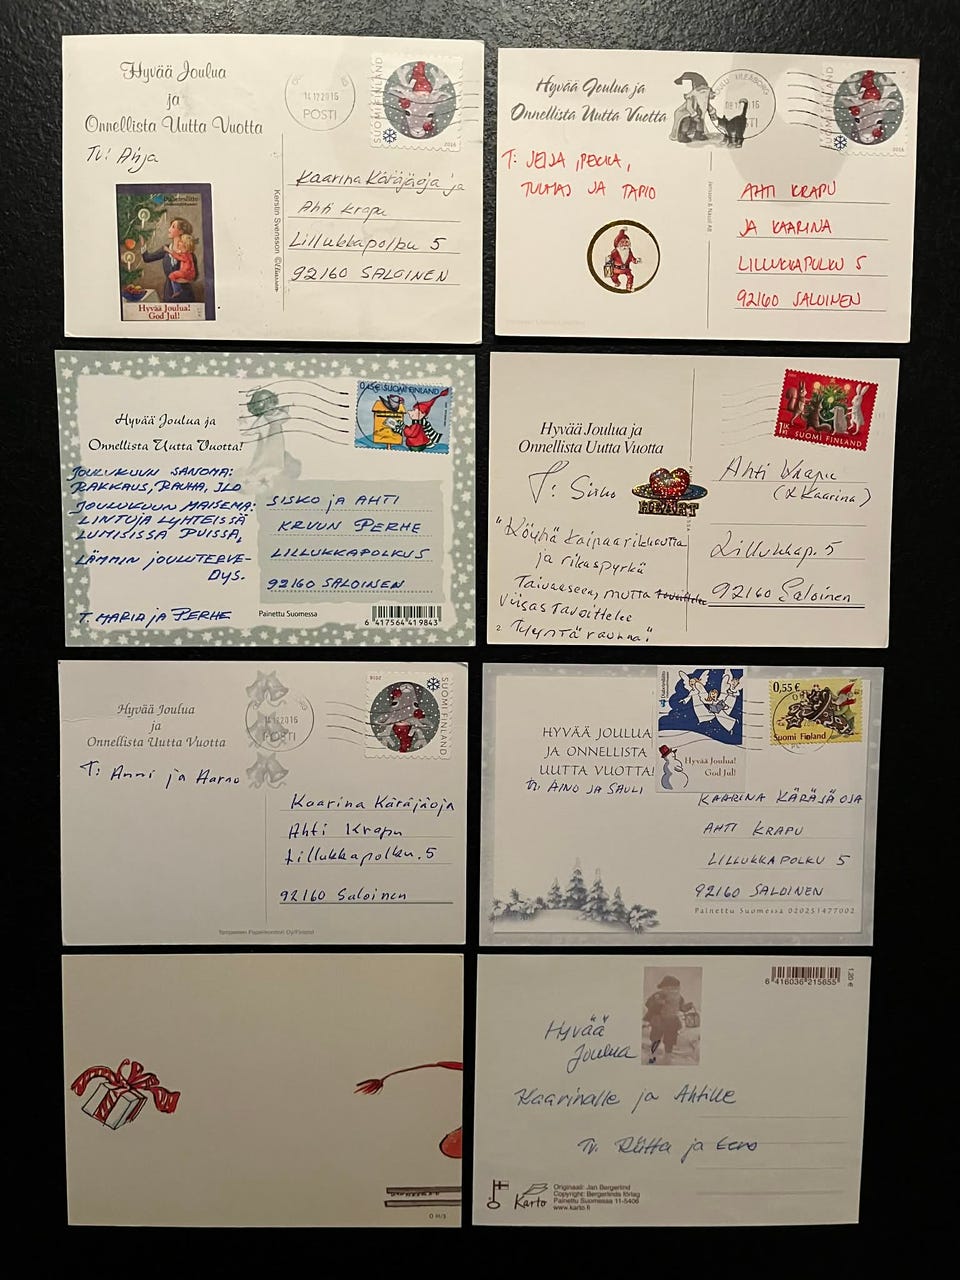 Hyvää Joulua
ja
Onnellista Uutta Vuotta
Tv: Anja
Diabetesliitto
Hyvää Joulua!
God Jul!
Kerstin Svensson
14.12.2016
POSTI
SUOMI FINLAND
2016
Kaarina Käräjäoja ja
Ahti Krapu
Lillukkapolku 5
92160 SALOINEN
Hyvää Joulua ja
Onnellista Uutta Vuotta
T: VEIJA, PEKKA,
TUOMAS JA TAPIO
OULU ULEÅBORG
16
SUOMI FINLAND
2016
AHTI KRAPU
JA KAARINA
LILLUKKAPOLKU 5
92160 SALOINEN
Hyvää Joulua ja
Onnellista Uutta Vuotta!
JOULUKUUN SANOMA:
RAKKAUS, RAUHA, ILO
JOULUKUUN MAISEMA:
LINTUJA LYHTEISSÄ
LUMISISSA PUISSA,
LÄMMIN JOULUTERVE-
DYS.
T. MARIA JA PERHE
0,45€ SUOMI FINLAND
SISKO JA AHTI
KRUUN PERHE
LILLUKKAPOLKU 5
92160 SALOINEN
Painettu Suomessa
6 417564 419843
Hyvää Joulua ja
Onnellista Uutta Vuotta
T: Sisko
HEART
"Köyhä kaipaa rikkautta
ja rikas pyrkii
Taivaaseen, mutta
viisas tavoittelee
Tyyntä rauhaa."
2
1 lk
kl
SUOMI FINLAND
Ahti Krapu
(& Kaarina)
Lillukkap. 5
92160 Saloinen
Hyvää Joulua
ja
Onnellista Uutta Vuotta
T: Anni ja Aarno
14.12.2016
POSTI
2016
SUOMI FINLAND
Kaarina Käräjäoja
Ahti Krapu
Lillukkapolku 5
92160 Saloinen
Tampereen Paperikonttori Oy/Finland
HYVÄÄ JOULUA
JA ONNELLISTA
UUTTA VUOTTA!
Tv. AINO JA SAULI
Diabetesliitto
Hyvää Joulua!
God Jul!
0,55 €
Suomi Finland
KAARINA KÄRÄJÄOJA
AHTI KRAPU
LILLUKKAPOLKU 5
92160 SALOINEN
Painettu Suomessa 020251477002
6 416036 215655
1,20 €
Hyvää
Joulua!
Kaarinalle ja Ahtille
Tv. Riitta ja Eero
Karto
Originaali: Jan Bergerlind
Copyright: Bergerlinds förlag
Painettu Suomessa 11-5406
www.karto.fi